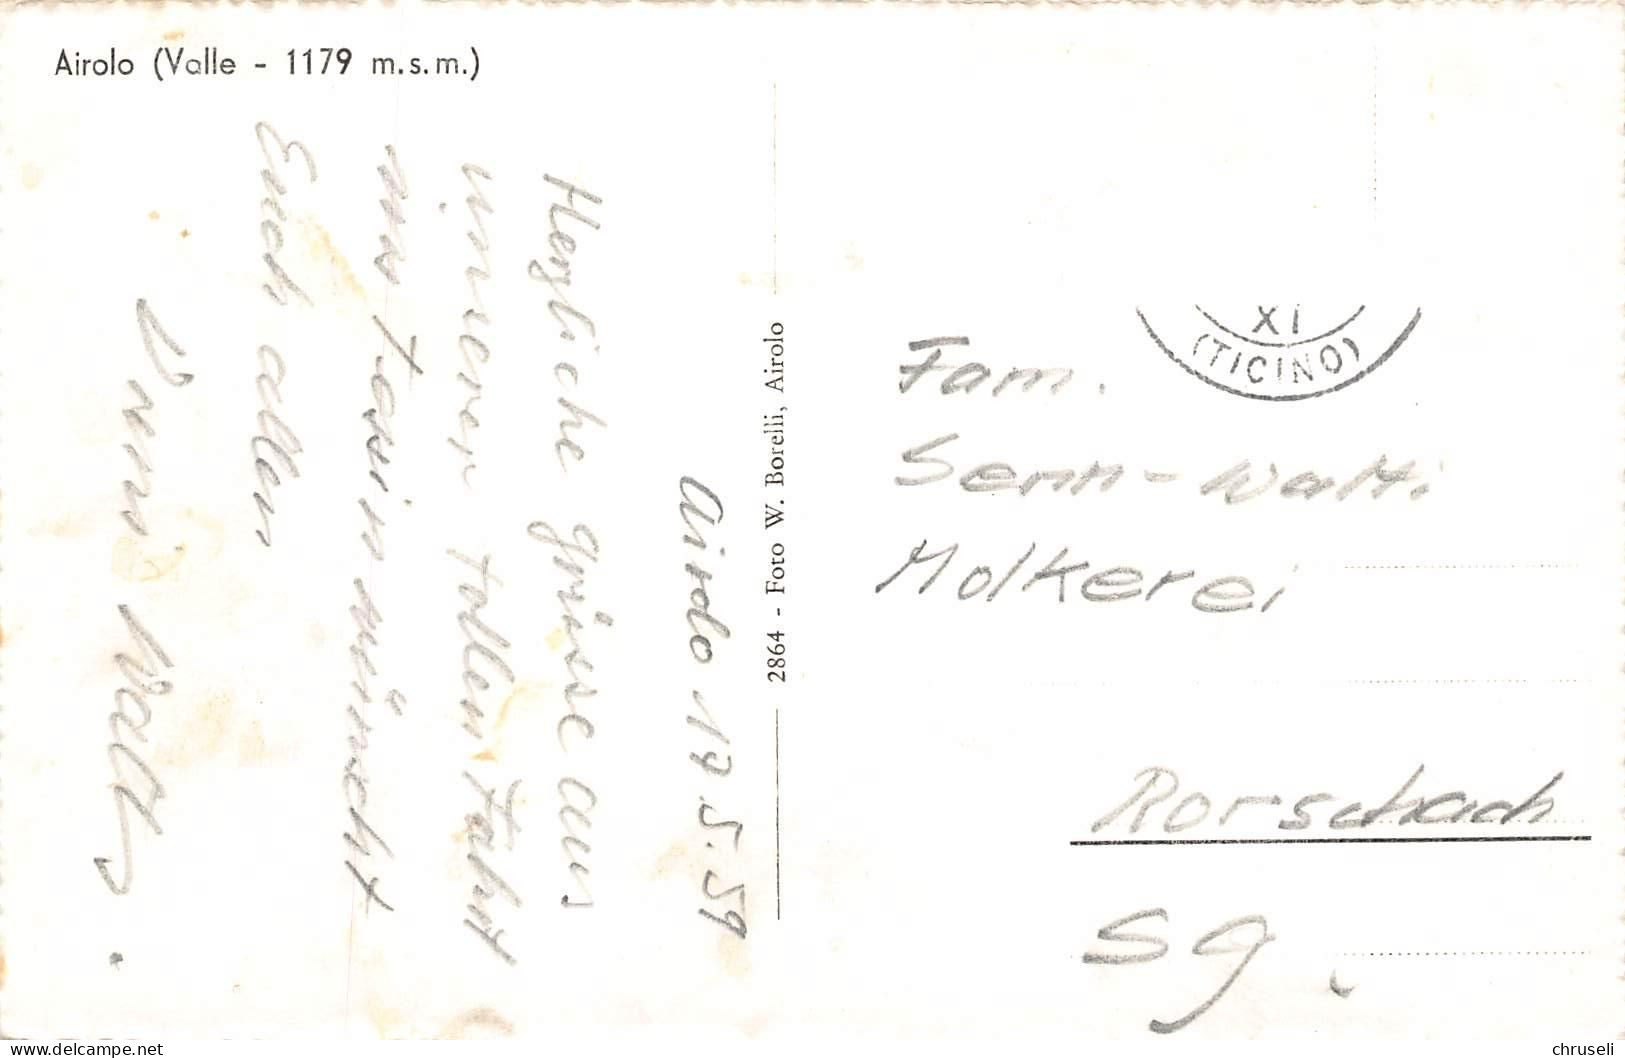 Airolo (Valle - 1179 m.s.m.)
Airolo 17.5.59
Herzliche Grüsse aus
unserer tollen Fahrt
ins Tessin wünscht
Euch allen
Walti.
2864 - Foto W. Borelli, Airolo
XI
(TICINO)
Fam.
Senn-Walti
Molkerei
Rorschach
SG.
chruseli